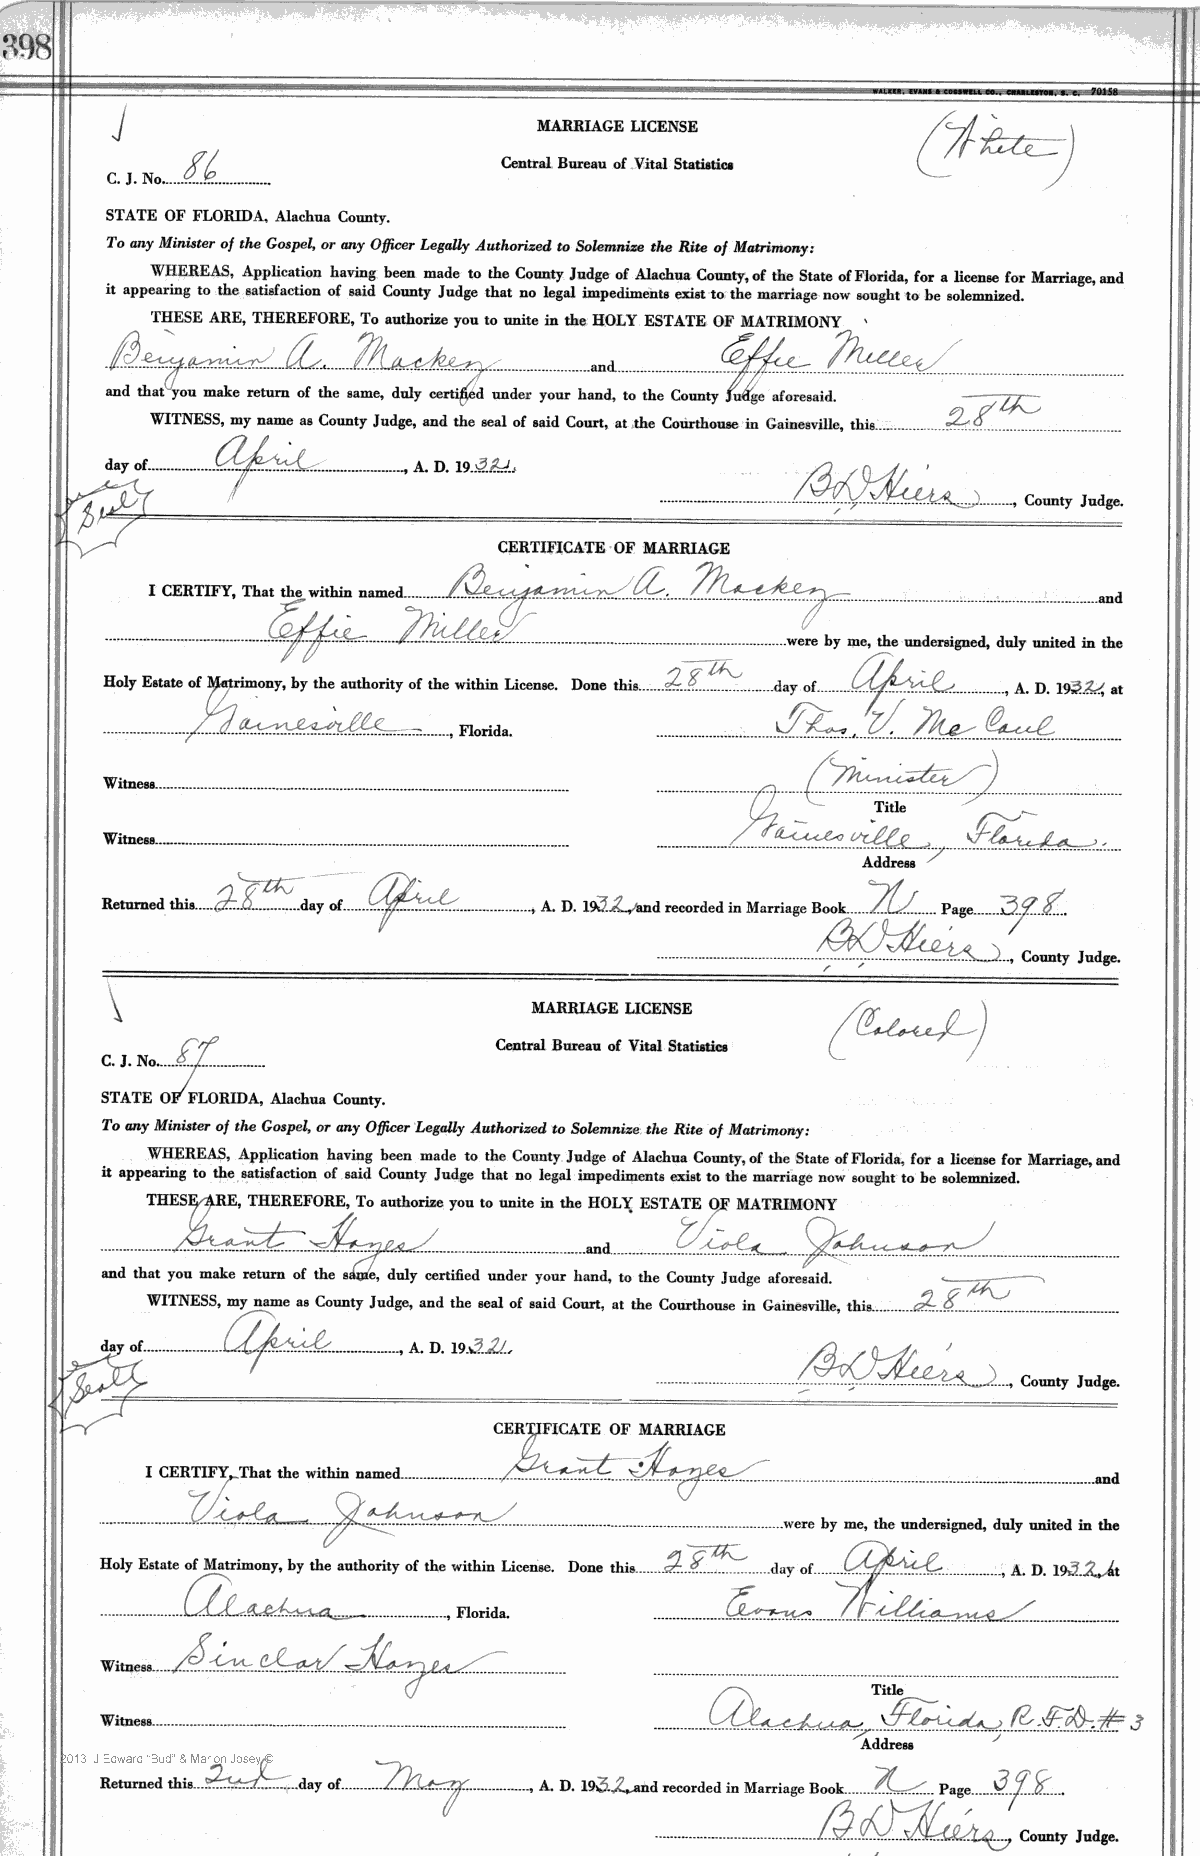 398
WALKER, EVANS & COGSWELL CO., CHARLESTON, S. C. 70158
MARRIAGE LICENSE
(White)
Central Bureau of Vital Statistics
C. J. No. 86
STATE OF FLORIDA, Alachua County.
To any Minister of the Gospel, or any Officer Legally Authorized to Solemnize the Rite of Matrimony:
WHEREAS, Application having been made to the County Judge of Alachua County, of the State of Florida, for a license for Marriage, and
it appearing to the satisfaction of said County Judge that no legal impediments exist to the marriage now sought to be solemnized.
THESE ARE, THEREFORE, To authorize you to unite in the HOLY ESTATE OF MATRIMONY
Benjamin A. Mackey and Effie Miller
and that you make return of the same, duly certified under your hand, to the County Judge aforesaid.
WITNESS, my name as County Judge, and the seal of said Court, at the Courthouse in Gainesville, this 28th
day of April, A. D. 1932.
B D Hiers, County Judge.
Seal
CERTIFICATE OF MARRIAGE
I CERTIFY, That the within named Benjamin A. Mackey and
Effie Miller were by me, the undersigned, duly united in the
Holy Estate of Matrimony, by the authority of the within License. Done this 28th day of April, A. D. 1932, at
Gainesville, Florida. Thos. V. McCaul
Witness (Minister)
Title
Witness Gainesville, Florida.
Address
Returned this 28th day of April, A. D. 1932, and recorded in Marriage Book N Page 398.
B D Hiers, County Judge.
MARRIAGE LICENSE
(Colored)
Central Bureau of Vital Statistics
C. J. No. 87
STATE OF FLORIDA, Alachua County.
To any Minister of the Gospel, or any Officer Legally Authorized to Solemnize the Rite of Matrimony:
WHEREAS, Application having been made to the County Judge of Alachua County, of the State of Florida, for a license for Marriage, and
it appearing to the satisfaction of said County Judge that no legal impediments exist to the marriage now sought to be solemnized.
THESE ARE, THEREFORE, To authorize you to unite in the HOLY ESTATE OF MATRIMONY
Grant Hayes and Viola Johnson
and that you make return of the same, duly certified under your hand, to the County Judge aforesaid.
WITNESS, my name as County Judge, and the seal of said Court, at the Courthouse in Gainesville, this 28th
day of April, A. D. 1932.
B D Hiers, County Judge.
Seal
CERTIFICATE OF MARRIAGE
I CERTIFY, That the within named Grant Hayes and
Viola Johnson were by me, the undersigned, duly united in the
Holy Estate of Matrimony, by the authority of the within License. Done this 28th day of April, A. D. 1932, at
Alachua, Florida. Evans Williams
Witness Sinclar Hayes
Title
Witness Alachua, Florida, R.F.D. # 3
Address
2013 J Edward "Bud" & Marion Josey ©
Returned this 2nd day of May, A. D. 1932, and recorded in Marriage Book N Page 398.
B D Hiers, County Judge.